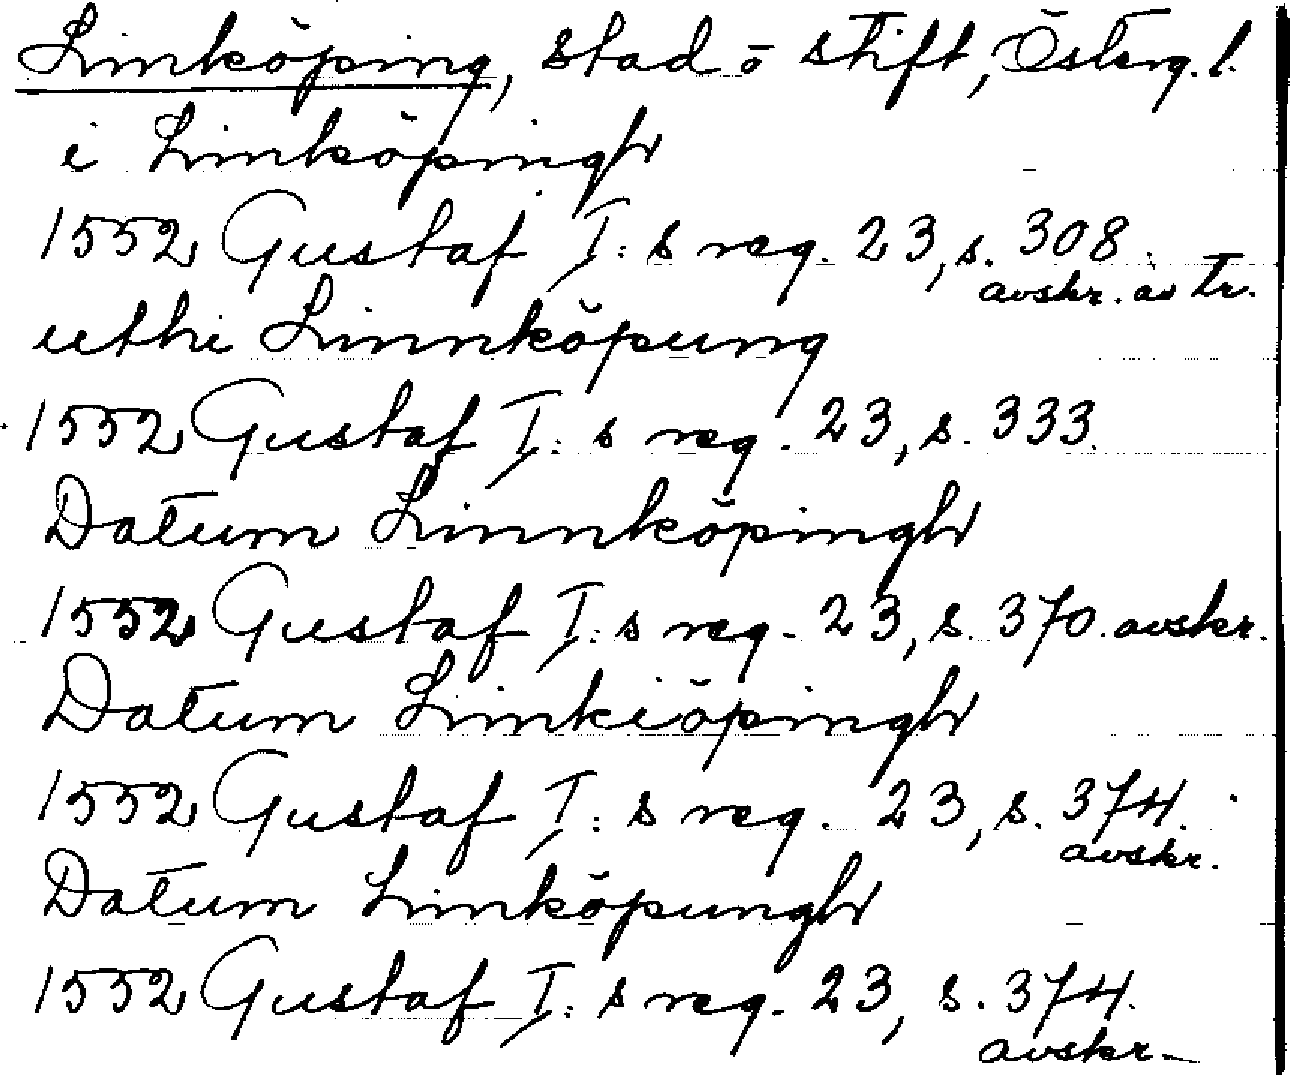 Linköping, stad o stift, Österg. l.
i Linköpingh
1552 Gustaf I: s reg. 23, s. 308.
avskr. av tr.
uthi Linnköpung
1552 Gustaf I: s reg. 23, s. 333.
Datum Linnköpingh
1552 Gustaf I: s reg. 23, s. 370. avskr.
Datum Linkiöpingh
1552 Gustaf I: s reg. 23, s. 374.
avskr.
Datum Linköpungh
1552 Gustaf I: s reg. 23, s. 374.
avskr.